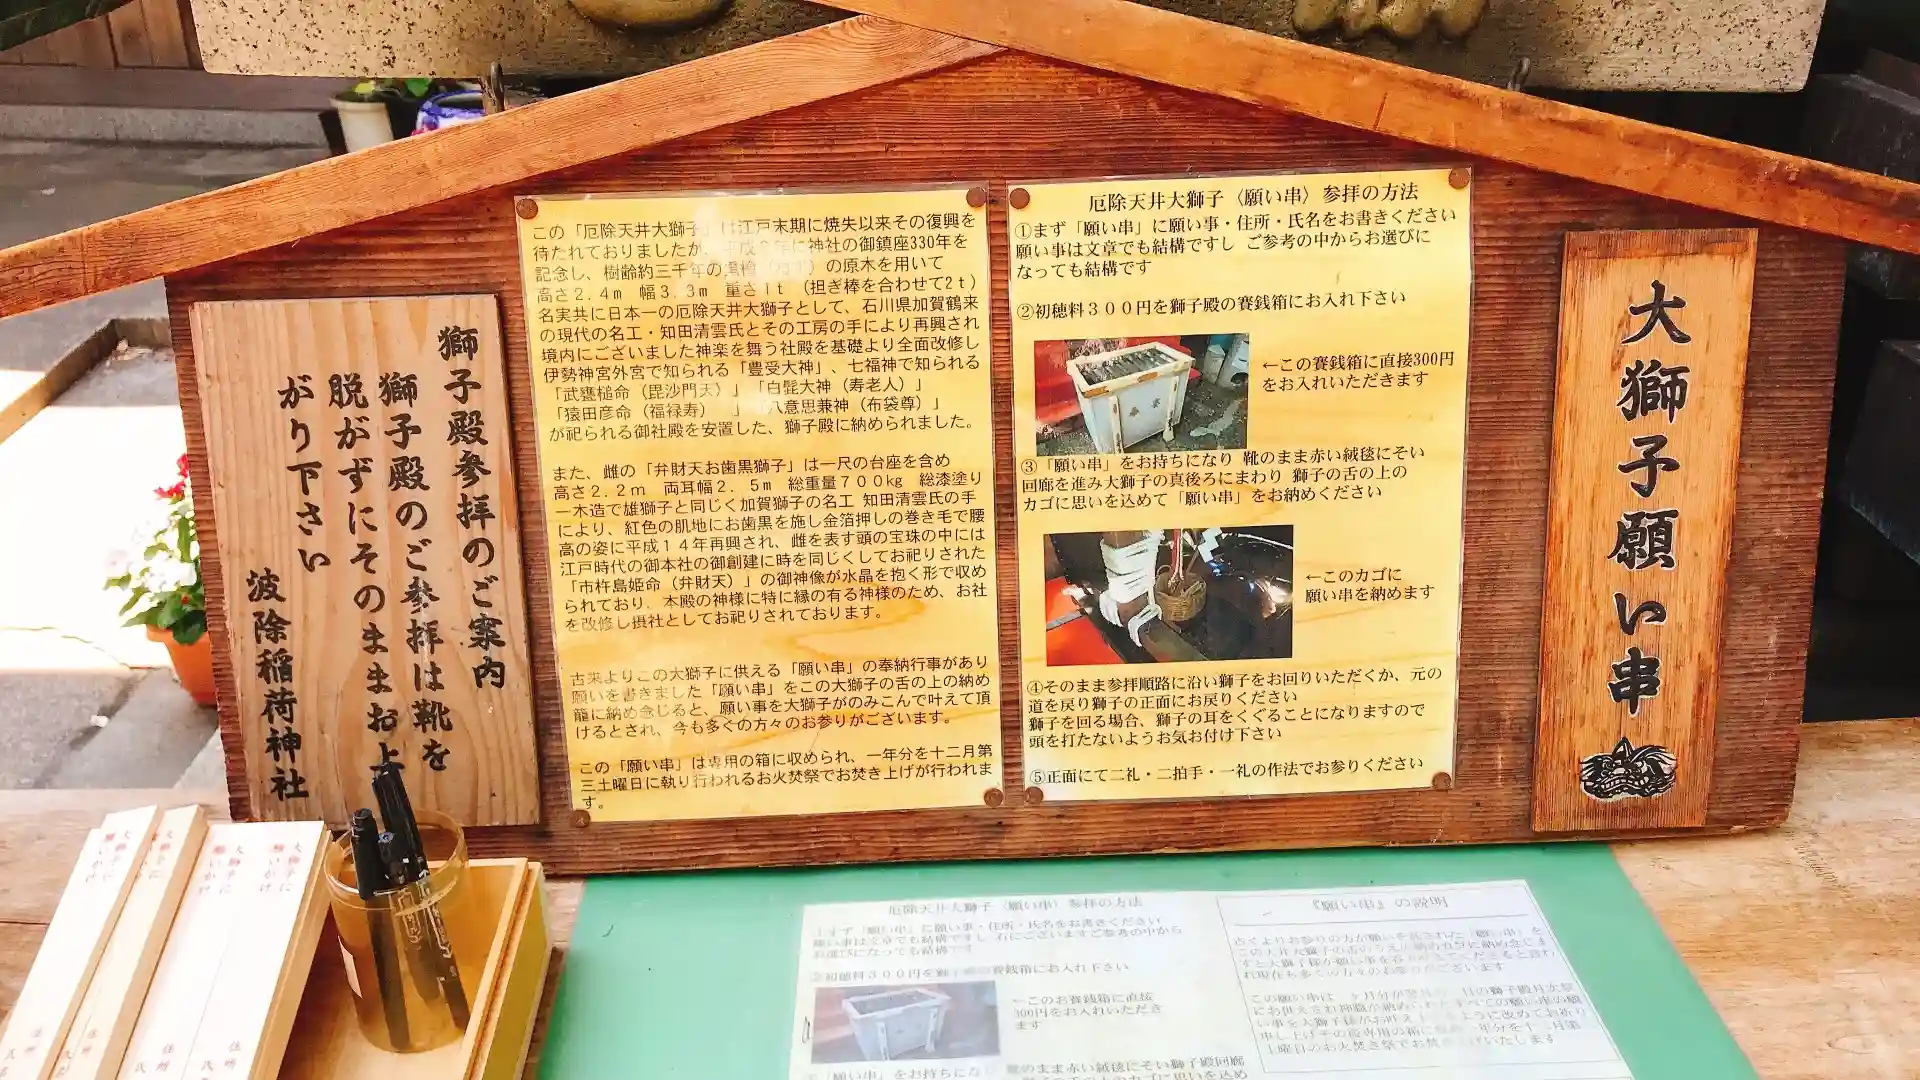 獅子殿参拝のご案内
獅子殿のご参拝は靴を
脱がずにそのままお上
がり下さい
波除稲荷神社
この「厄除天井大獅子」は江戸末期に焼失以来その復興を
待たれておりましたが、平成2年に神社の御鎮座330年を
記念し、樹齢約三千年の
の原木を用いて
高さ2.4m 幅3.3m 重さ1t (担ぎ棒を合わせて2t)
名実共に日本一の厄除天井大獅子として、石川県加賀鶴来
の現代の名工・知田清雲氏とその工房の手により再興され
境内にございました神楽を舞う社殿を基礎より全面改修し
伊勢神宮外宮で知られる「豊受大神」、七福神で知られる
「武甕槌命(毘沙門天)」「白髭大神(寿老人)」
「猿田彦命(福禄寿) 」「八意思兼神(布袋尊)」
が祀られる御社殿を安置した、獅子殿に納められました。
また、雌の「弁財天お歯黒獅子」は一尺の台座を含め
高さ2.2m 両耳幅2.5m 総重量700kg 総漆塗り
一木造で雄獅子と同じく加賀獅子の名工 知田清雲氏の手
により、紅色の肌地にお歯黒を施し金箔押しの巻き毛で腰
高の姿に平成14年再興され、雌を表す頭の宝珠の中には
江戸時代の御本社の御創建に時を同じくしてお祀りされた
「市杵島姫命(弁財天)」の御神像が水晶を抱く形で収め
られており、本殿の神様に特に縁の有る神様のため、お社
を改修し摂社としてお祀りされております。
古来よりこの大獅子に供える「願い串」の奉納行事があり
願いを書きました「願い串」をこの大獅子の舌の上の納め
籠に納め念じると、願い事を大獅子がのみこんで叶えて頂
けるとされ、今も多くの方々のお参りがございます。
この「願い串」は専用の箱に収められ、一年分を十二月第
三土曜日に執り行われるお火焚祭でお焚き上げが行われま
す。
厄除天井大獅子〈願い串〉参拝の方法
①まず「願い串」に願い事・住所・氏名をお書きください
願い事は文章でも結構ですし ご参考の中からお選びに
なっても結構です
②初穂料300円を獅子殿の賽銭箱にお入れ下さい
←この賽銭箱に直接300円
をお入れいただきます
③「願い串」をお持ちになり 靴のまま赤い絨毯にそい
回廊を進み大獅子の真後ろにまわり 獅子の舌の上の
カゴに思いを込めて「願い串」をお納めください
←このカゴに
願い串を納めます
④そのまま参拝順路に沿い獅子をお回りいただくか、元の
道を戻り獅子の正面にお戻りください
獅子を回る場合、獅子の耳をくぐることになりますので
頭を打たないようお気お付け下さい
⑤正面にて二礼・二拍手・一礼の作法でお参りください
大獅子願い串
大獅子に
願いがけ
住所
大獅子に
願いがけ
住所
大獅子に
願いがけ
住所
氏
厄除天井大獅子〈願い串〉参拝の方法
①まず「願い串」に願い事・住所・氏名をお書きください
願い事は文章でも結構ですし 右にございますご参考の中から
お選びになっても結構です
②初穂料300円を獅子殿の賽銭箱にお入れ下さい
←このお賽銭箱に直接
300円をお入れいただき
ます
「願い串」をお持ちにな
靴のまま赤い絨毯にそい獅子殿回廊
『願い串』の説明